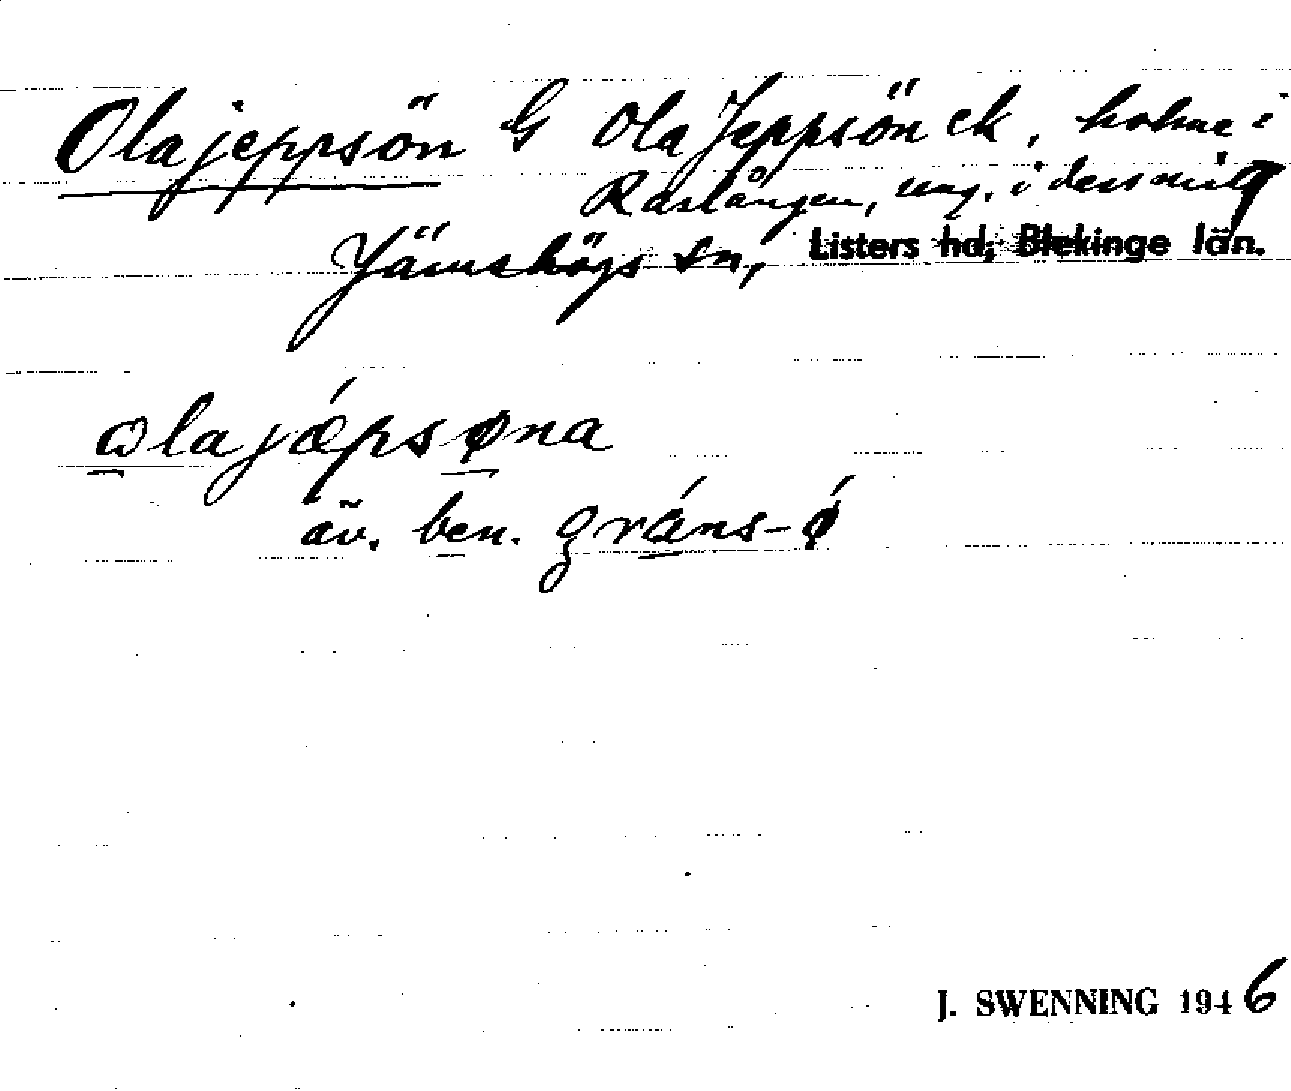 Olajeppsön G Ola Jeppsön ek, holme i
Raslången, ung. i dess mitt
Jämshögs sn, Listers hd, Blekinge län.
ɷlajǽpsøna
äv. ben. gráns-ǿ
J. SWENNING 1946